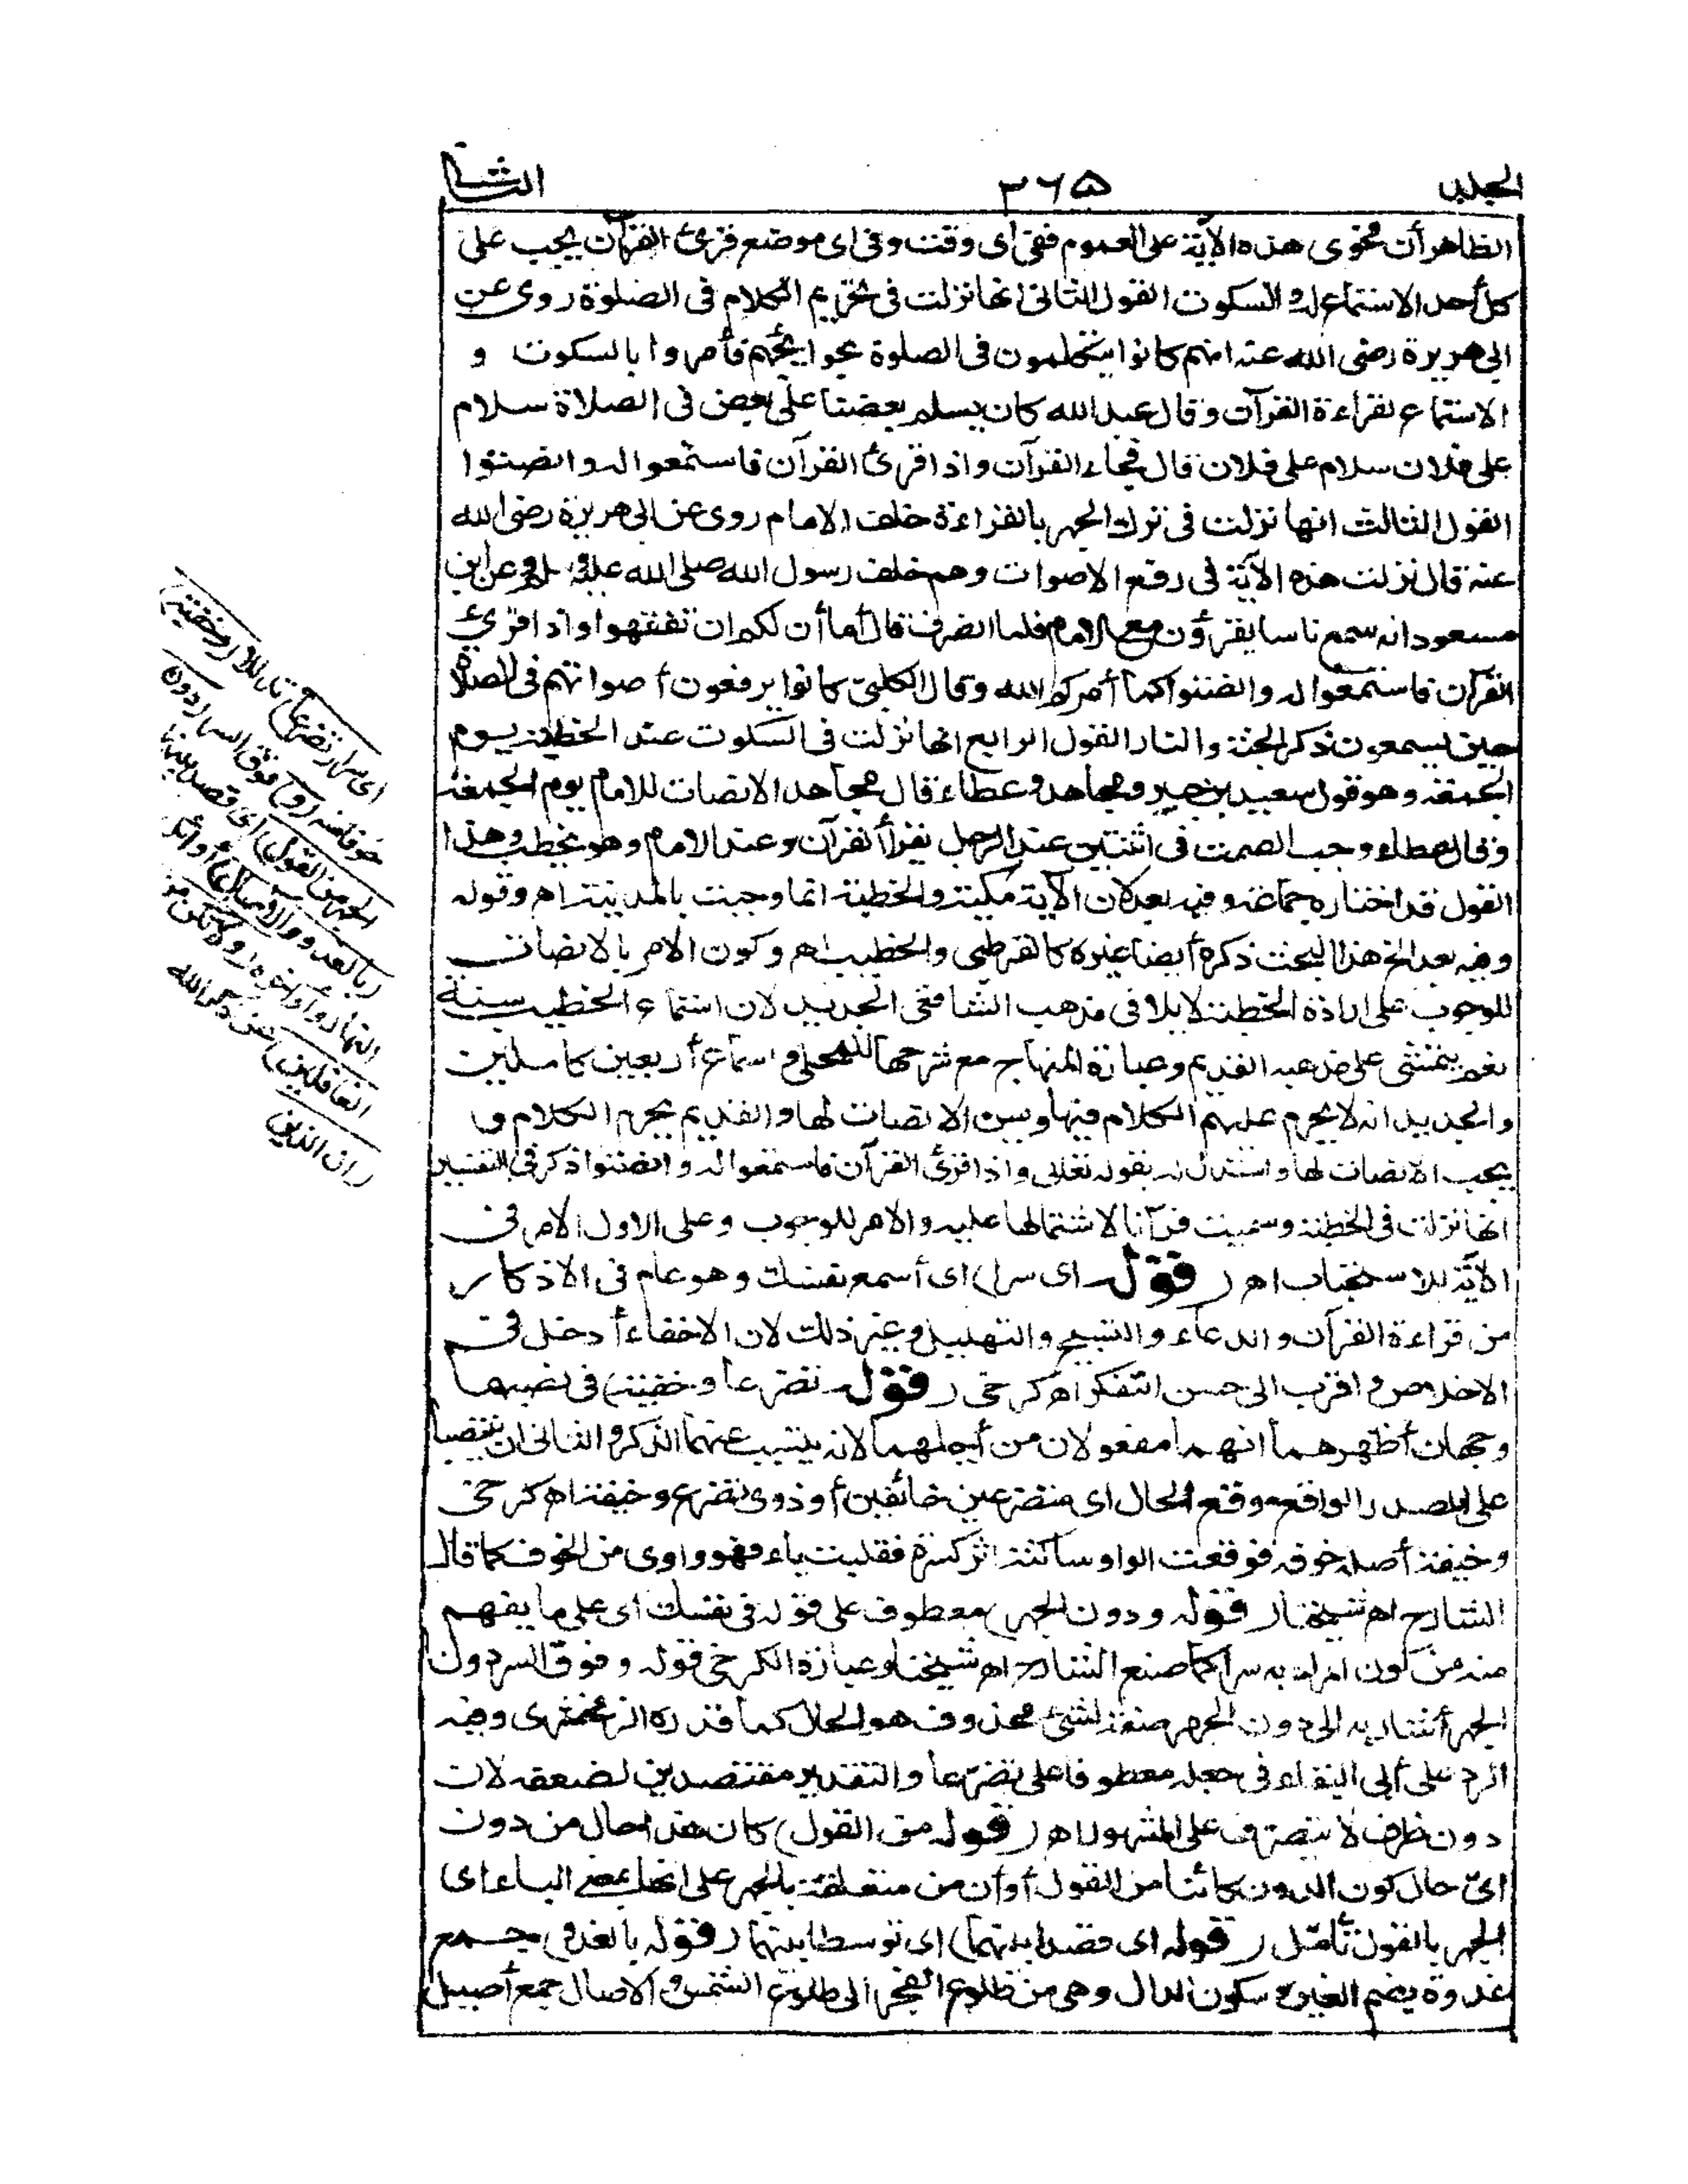 الجلد
٣٦٥
الثانى
الظاهر أن فحوى هذه الآية على العموم ففى أى وقت وفى اى موضع قرئ القرآن يجب على
كل أحد الاستماع له والسكوت القول الثانى انها نزلت فى تحريم الكلام فى الصلوة روى عن
ابى هريرة رضى الله عنه انهم كانوا يتكلمون فى الصلوة بحوائجهم فأمروا بالسكوت و
الاستماع لقراءة القرآن وقال عبد الله كان يسلم بعضنا على بعض فى الصلاة سلام
على فلان سلام على فلان قال فجاء القرآن واذا قرئ القرآن فاستمعوا له وانصتوا
القول الثالث انها نزلت فى ترك الجهر بالقراءة خلف الامام روى عن ابى هريرة رضى الله
عنه قال نزلت هذه الآية فى رفع الاصوات وهم خلف رسول الله صلى الله عليه وسلم وعن ابن
مسعود انه سمع ناسا يقرؤن مع الامام فلما انصرف قال أما أن لكم ان تفقهوا واذا قرئ
القرآن فاستمعوا له وانصتوا كما أمركم الله وقال الكلبى كانوا يرفعون أصواتهم فى الصلاة
حين يسمعون ذكر الجنة والنار القول الرابع انها نزلت فى السكوت عند الخطبة يوم
الجمعة وهو قول سعيد بن جبير ومجاهد وعطاء قال مجاهد الانصات للامام يوم الجمعة
وقال عطاء وجب الصمت فى اثنتين عند الرجل يقرأ القرآن وعند الامام وهو يخطب وهذا
القول قد اختاره جماعة وفيه بعد لان الآية مكية والخطبة انما وجبت بالمدينة اهـ وقوله
وفيه بعد الخ هذا البحث ذكره أيضا غيره كالقرطبى والخطيب اهـ وكون الامر بالانصات
للوجوب على ارادة الخطبة لا يلاقى مذهب الشافعى الجديد لان استماع الخطيب سنة
نعم يتمشى على مذهبه القديم وعبارة المنهاج مع شرحها للمحلى واسماع أربعين كاملين
والجديد انه لا يحرم عليهم الكلام فيها ويسن الانصات لها والقديم يحرم الكلام و
يجب الانصات لها واستدل له بقوله تعالى واذا قرئ القرآن فاستمعوا له وانصتوا ذكر فى التفسير
انها نزلت فى الخطبة وسميت قرآنا لاشتمالها عليه والامر للوجوب وعلى الاول الامر فى
الآية للاستحباب اهـ (قوله اى سرا) اى أسمع نفسك وهو عام فى الاذكار
من قراءة القرآن والدعاء والتسبيح والتهليل وغير ذلك لان الاخفاء أدخل فى
الاخلاص واقرب الى حسن التفكر اهـ كرخى (قوله تضرعا وخفية) فى نصبهما
وجهان أظهرهما انهما مفعولان من أجلهما لانه يتسبب عنهما الذكر والثانى ان ينتصبا
على المصدر الواقع موقع الحال اى متضرعين خائفين أو ذوى تضرع وخيفة اهـ كرخى
وخيفة أصله خوفة فوقعت الواو ساكنة اثر كسرة فقلبت ياء فهو واوى من الخوف كما قال
الشارح اهـ شيخنا (قوله ودون الجهر) معطوف على قوله فى نفسك اى على ما يفهم
منه من كون المراد به سرا كما صنع الشارح اهـ شيخنا وعبارة الكرخى قوله وفوق السر دون
الجهر أشار به الى دون الجهر صفة لشئ محذوف هو الحال كما قدره الزمخشرى وفيه
الرد على أبى البقاء فى جعله معطوفا على تضرعا والتقدير مقتصدين لضعفه لان
دون ظرف لا يتصرف على المشهور اهـ (قوله من القول) كان هذا حال من دون
اى حال كون الدون كائنا من القول أو أن من متعلقة بالجهر على انها بمعنى الباء اى
الجهر بالقول تأمل (قوله اى قصدا بينهما) اى توسطا بينهما (قوله بالغدو) جمع
غدوة بضم الغين وسكون الدال وهى من طلوع الفجر الى طلوع الشمس والآصال جمع أصيل
اى سرا (تضرعا) تذللا (وخفية)
خوفا منه (و) فوق السر (دون
الجهر من القول) اى قصدا بينهما
(بالغدو والآصال) أوائل
النهار وأواخره (ولا تكن من
الغافلين) عن ذكر الله
(ان الذين